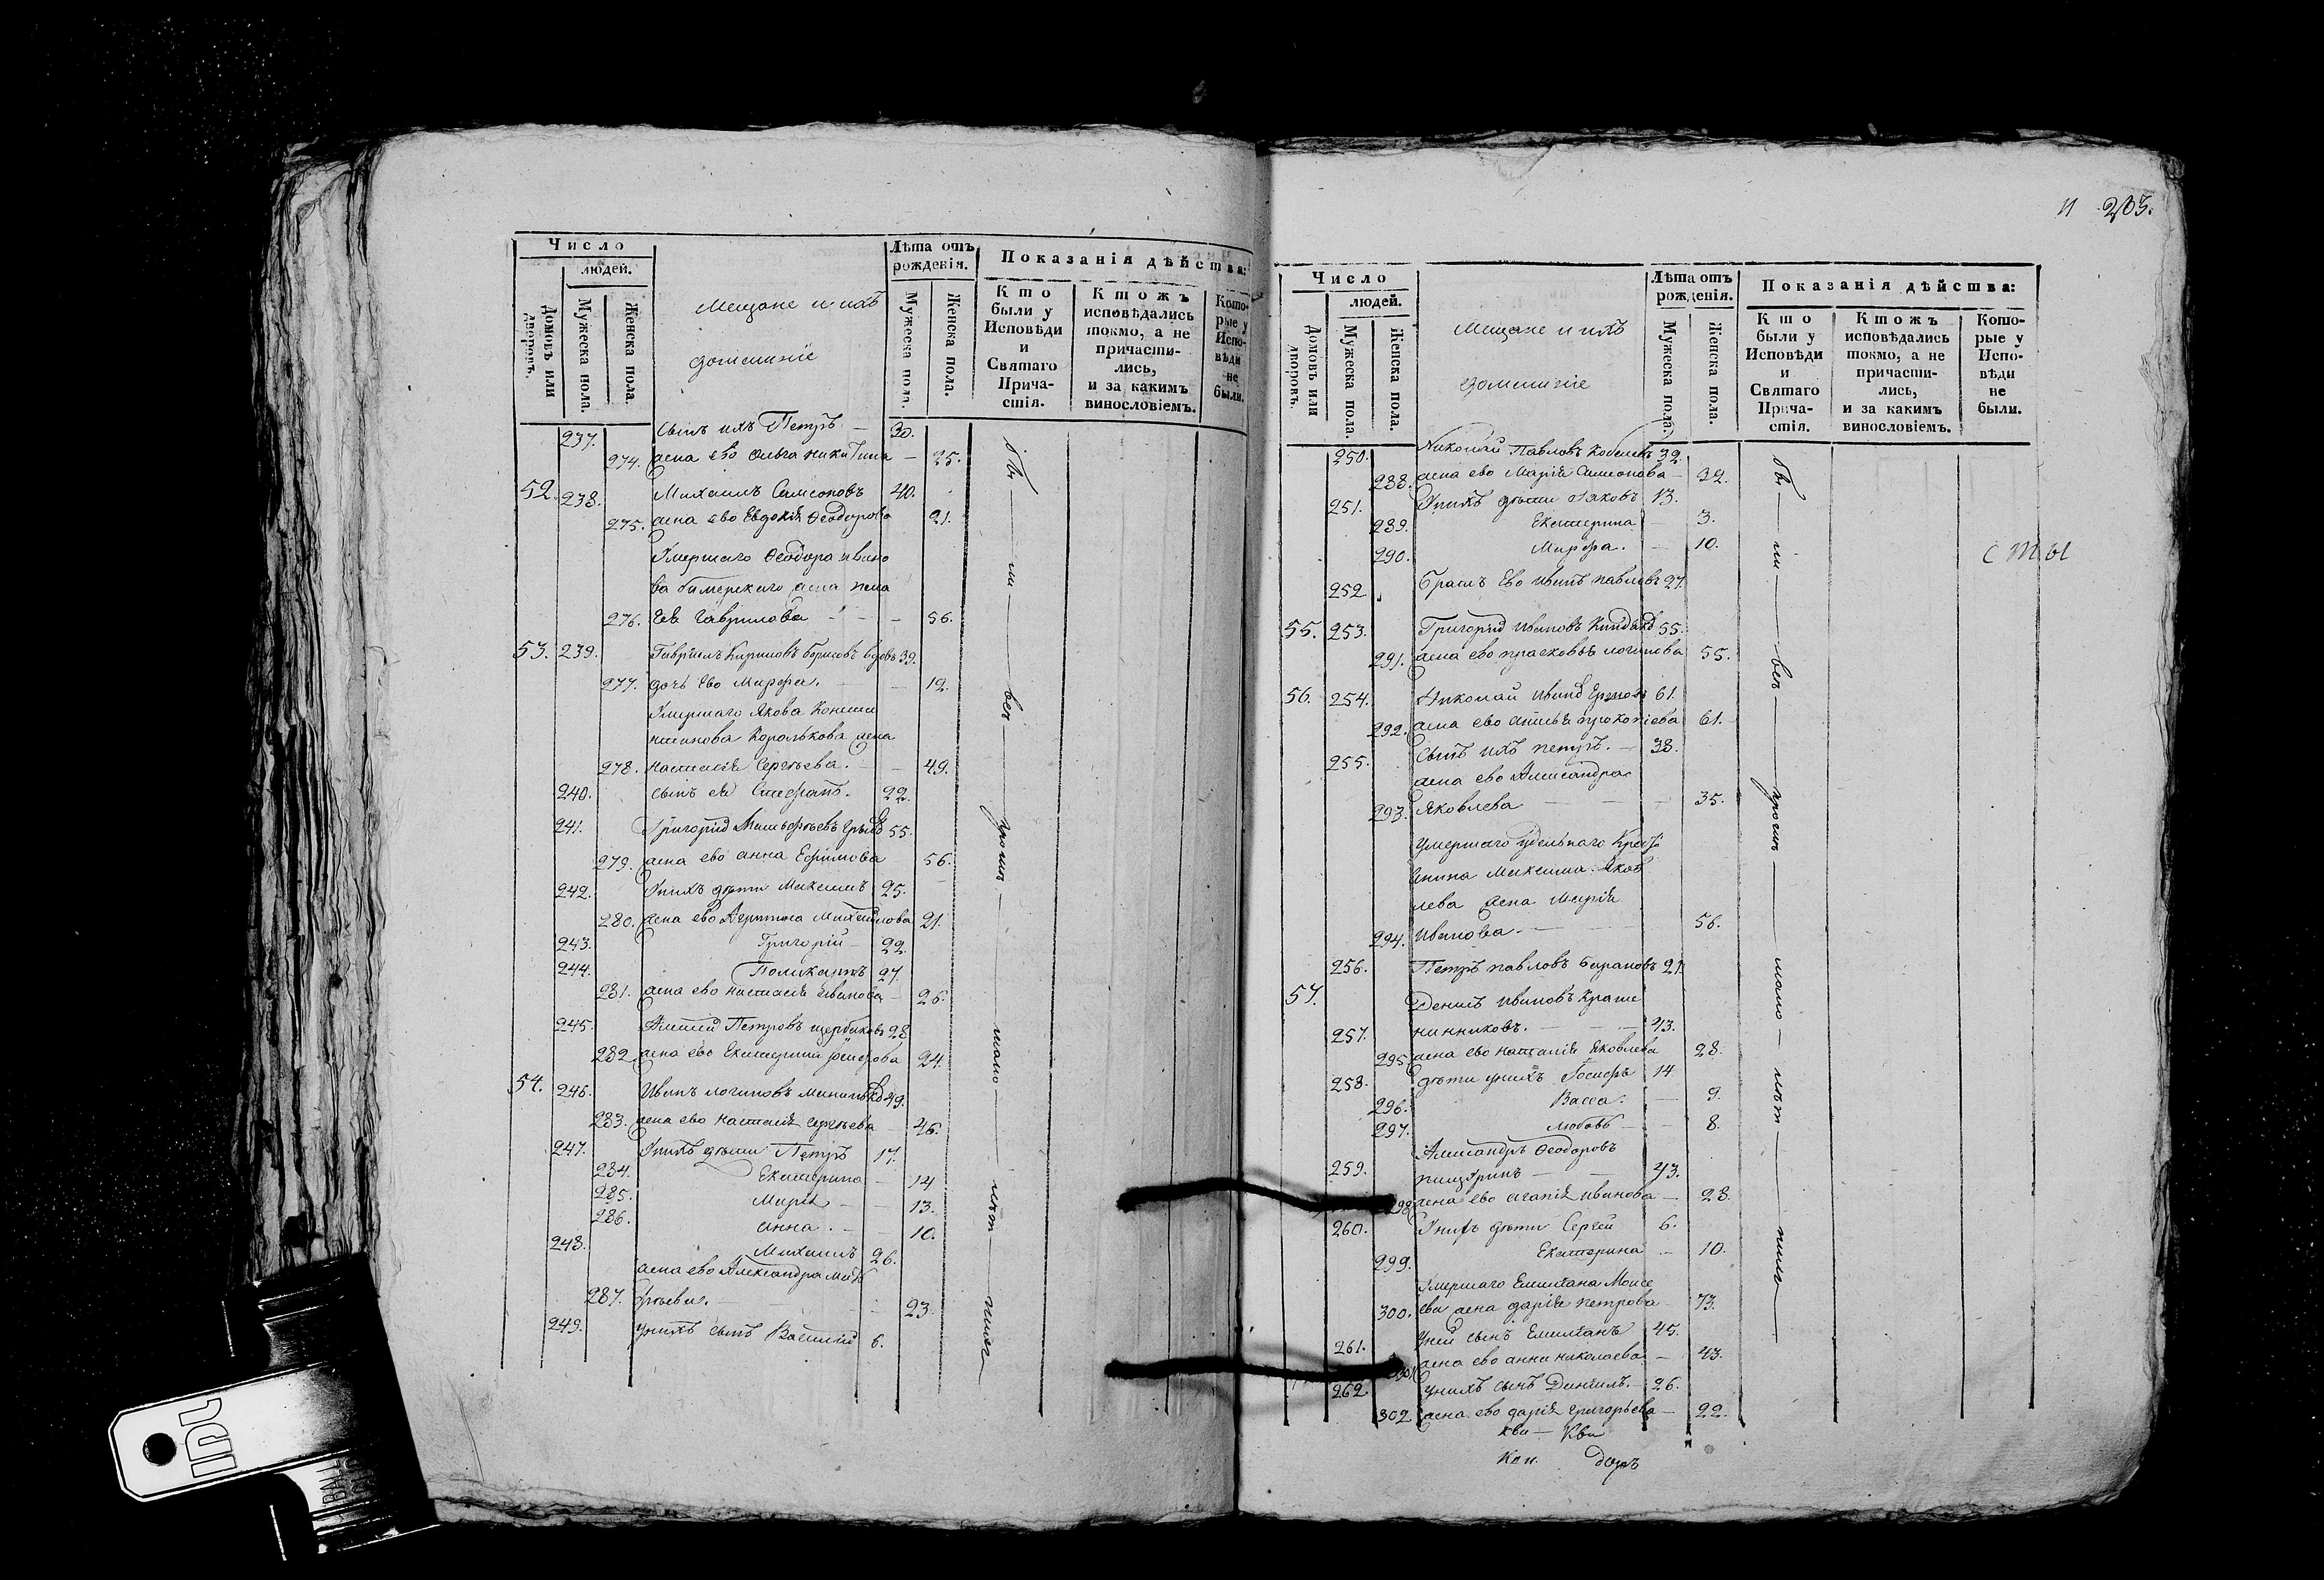 Число
людей.
Домовъ или дворовъ.
Мужеска пола.
Женска пола.
Мещане и ихъ
домашніе
Лѣта отъ рожденія.
Мужеска пола.
Женска пола.
Показанія дѣйства:
Кто были у Исповѣди и Святаго Прича-стія.
Ктожъ исповѣдались токмо, а не причасти-лись, и за какимъ винословіемъ.
Кото-рые у Испо-вѣди не были.
237. Сынъ ихъ Петръ — 30.
274. жена ево Ольга Никитина — 25.
52. 238. Михаилъ Самсоновъ 40.
275. жена ево Евдокія Ѳеодорова 21.
Умершаго Ѳеодора Ивано
ва жена
276. Гаврилова — 56.
53. 239. Гавріилъ Кириловъ Борисовъ вдовъ 39.
277. дочь Ево Марфа. — 12.
Умершаго Якова Конста
нтинова Королькова жена
278. Настасія Сергѣева. — 49.
240. сынъ ея Стефанъ. 22.
241. Григорій 55.
279. жена ево Анна Ефимова 56.
242. Уних дѣти Максимъ 25.
280. жена ево Агрипина Михаилова 21.
243. Григорій — 22.
244. Поликарпъ 27.
281. жена ево Настасія Иванова — 26.
245. Алексей Петровъ Щербаковъ 28.
282. жена ево Екатерина 24.
54. 246. Иванъ Логиновъ 49.
283. жена ево Настасія Сергѣева — 46.
247. Унихъ дѣти Петръ 17.
284. Екатерина — 14
285. Марія — 13.
286. Анна. — 10.
248. Михаилъ 26.
жена ево Александра Мат
287. фѣева. — 23.
249. Унихъ сынъ Василій 6.
бы — ли — всѣ — — мало — лѣт —
205.
Число
людей.
Домовъ или дворовъ.
Мужеска пола.
Женска пола.
Мещане и ихъ
домашніе
Лѣта отъ рожденія.
Мужеска пола.
Женска пола.
Показанія дѣйства:
Кто были у Исповѣди и Святаго Прича-стія.
Ктожъ исповѣдались токмо, а не причасти-лись, и за какимъ винословіемъ.
Кото-рые у Испо-вѣди не были.
250. Николай Павловъ 32.
288. жена ево Марія Самсонова — 32.
251. Унихъ дѣти Яковъ 13.
289. Екатерина — 3.
290. Марфа. — 10.
252. Братъ Ево Иванъ Павловъ 27.
55. 253. Григорій Ивановъ 55.
291. жена ево Прасковья Логинова 55.
56. 254. Николай Ивановъ 61.
292. жена ево Прокопіева 61.
255. Сынъ ихъ Петръ. — 38.
жена ево Александра
293. Яковлева — 35.
Умершаго удельнаго Кресть
янина Максима Яков
лева жена Марія
294. Иванова. — 56.
256. Петръ Павловъ Барановъ 21.
57. Данилъ Ивановъ Краше
257. нинниковъ. — 43.
295 жена ево Наталія Яковлева 28.
258. дѣти унихъ Іосифъ 14
296. Васса. — 9.
297. Любовь — 8.
Александръ Ѳеодоровъ
259. — 43.
298 жена ево Агапія Иванова — 28.
260. Унихъ дѣти Сергей 6.
299. Екатерина — 10.
Умершаго Емиліана Моисе
300. ева жена Дарія Петрова 73.
261. Уней сынъ Емиліанъ 45.
301 жена ево Анна Николаева — 43.
262. Унихъ сынъ Данилъ. — 26.
302 жена ево Дарія Григорьева — 22.
бы — ли — всѣ — — мало — лѣт —